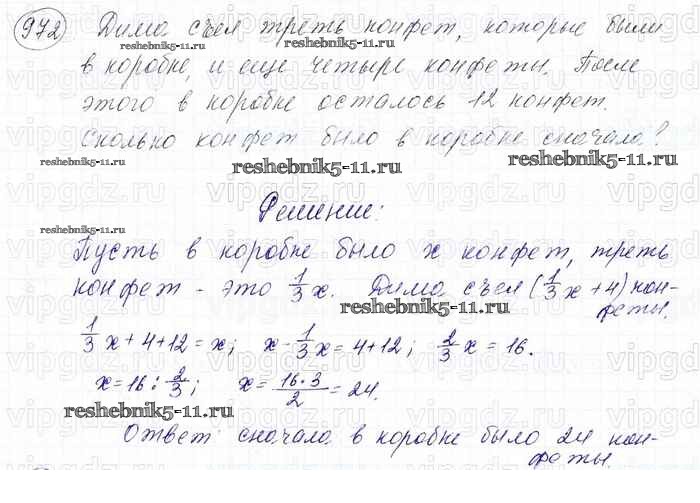 972 Дима съел треть конфет, которые были
в коробке, и еще четыре конфеты. После
этого в коробке осталось 12 конфет.
Сколько конфет было в коробке сначала?
Решение:
Пусть в коробке было x конфет, треть
конфет - это 1/3 x. Дима съел (1/3 x + 4) кон-
феты.
1/3 x + 4 + 12 = x; x - 1/3 x = 4 + 12; 2/3 x = 16.
x = 16 : 2/3; x = 16·3/2 = 24.
Ответ: сначала в коробке было 24 кон-
феты.
reshebnik5-11.ru
reshebnik5-11.ru
reshebnik5-11.ru
reshebnik5-11.ru
reshebnik5-11.ru
reshebnik5-11.ru
reshebnik5-11.ru
reshebnik5-11.ru
vipgdz.ru